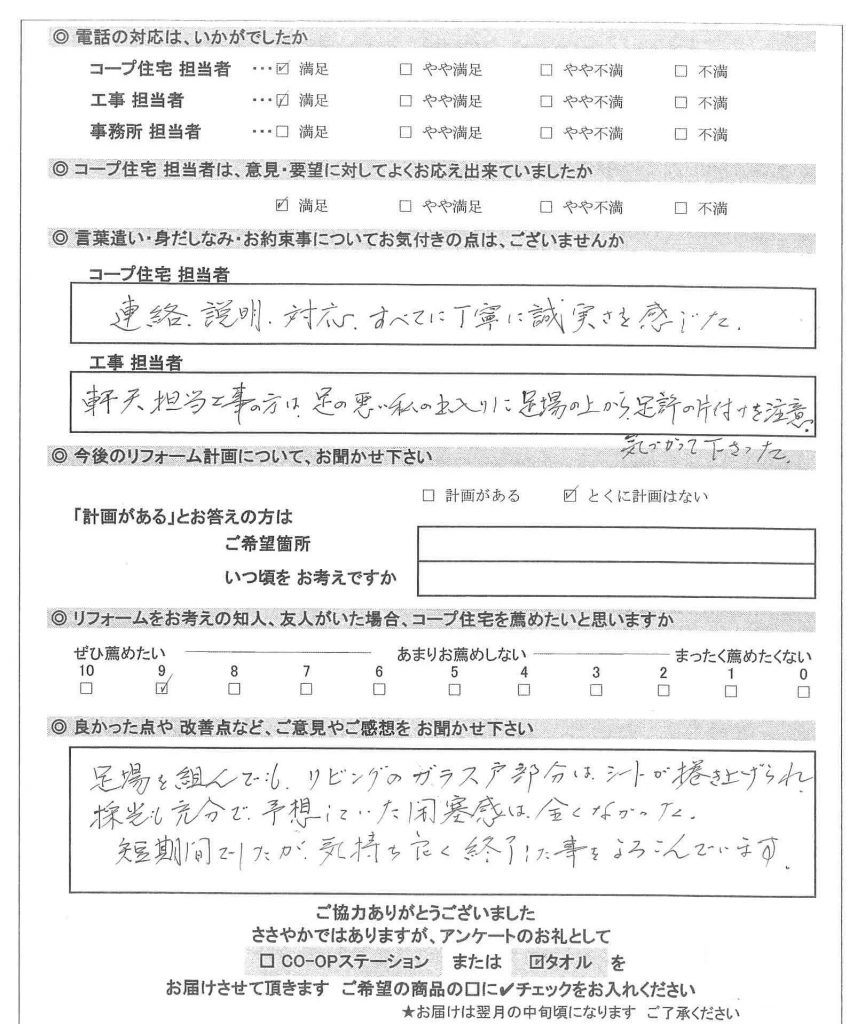 ◎ 電話の対応は、いかがでしたか
コープ住宅 担当者 …☑ 満足 □ やや満足 □ やや不満 □ 不満
工事 担当者 …☑ 満足 □ やや満足 □ やや不満 □ 不満
事務所 担当者 …□ 満足 □ やや満足 □ やや不満 □ 不満
◎ コープ住宅 担当者は、意見・要望に対してよくお応え出来ていましたか
☑ 満足 □ やや満足 □ やや不満 □ 不満
◎ 言葉遣い・身だしなみ・お約束事についてお気付きの点は、ございませんか
コープ住宅 担当者
連絡、説明、対応、すべてに丁寧に誠実さを感じた。
工事 担当者
軒天、担当工事の方は、足の悪い私の出入りに足場の上から、足許の片付けを注意、
気づかって下さった。
◎ 今後のリフォーム計画について、お聞かせ下さい
□ 計画がある ☑ とくに計画はない
「計画がある」とお答えの方は
ご希望箇所
いつ頃を お考えですか
◎ リフォームをお考えの知人、友人がいた場合、コープ住宅を薦めたいと思いますか
ぜひ薦めたい あまりお薦めしない まったく薦めたくない
10 9 8 7 6 5 4 3 2 1 0
□ ☑ □ □ □ □ □ □ □ □ □
◎ 良かった点や 改善点など、ご意見やご感想を お聞かせ下さい
足場を組んでも、リビングのガラス戸部分は、シートが捲き上げられ、
採光も充分で、予想していた閉塞感は、全くなかった。
短期間でしたが、気持ち良く終了した事をよろこんでいます。
ご協力ありがとうございました
ささやかではありますが、アンケートのお礼として
□ CO-OPステーション または ☑タオル を
お届けさせて頂きます ご希望の商品の口に✔チェックをお入れください
★お届けは翌月の中旬頃になります ご了承ください